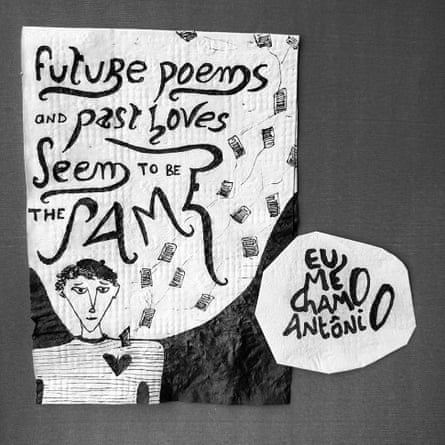 future poems
AND past loves
Seem TO BE
THE SAME
EU
ME
chamo
Antônio